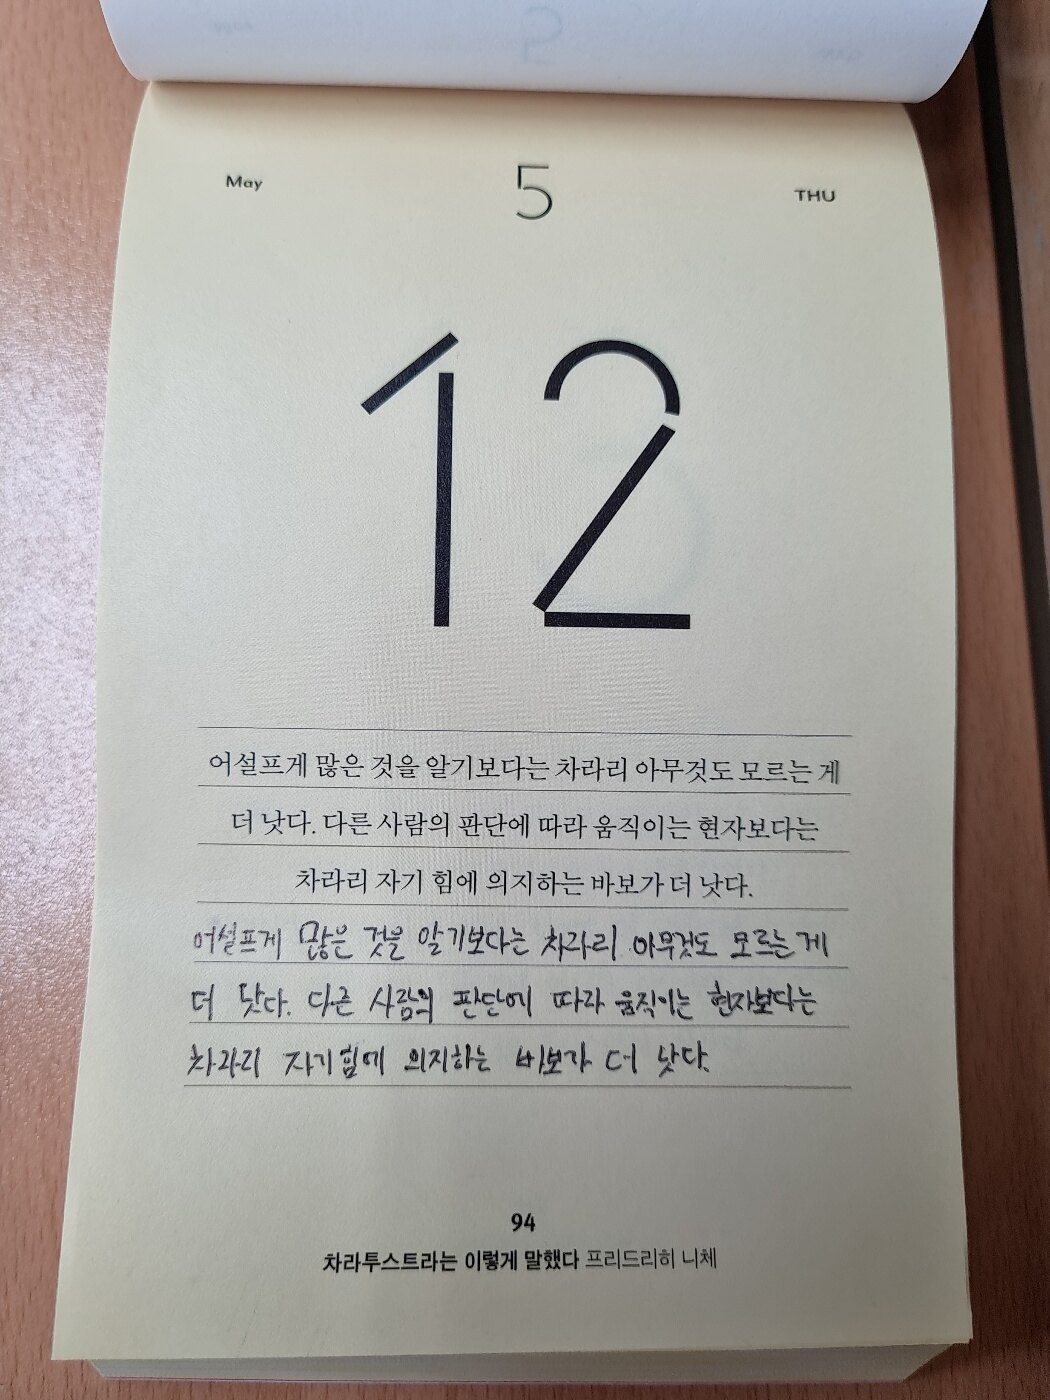 May 5 THU
12
어설프게 많은 것을 알기보다는 차라리 아무것도 모르는 게
더 낫다. 다른 사람의 판단에 따라 움직이는 현자보다는
차라리 자기 힘에 의지하는 바보가 더 낫다.
어설프게 많은 것을 알기보다는 차라리 아무것도 모르는 게
더 낫다. 다른 사람의 판단에 따라 움직이는 현자보다는
차라리 자기 힘에 의지하는 바보가 더 낫다.
94
차라투스트라는 이렇게 말했다 프리드리히 니체